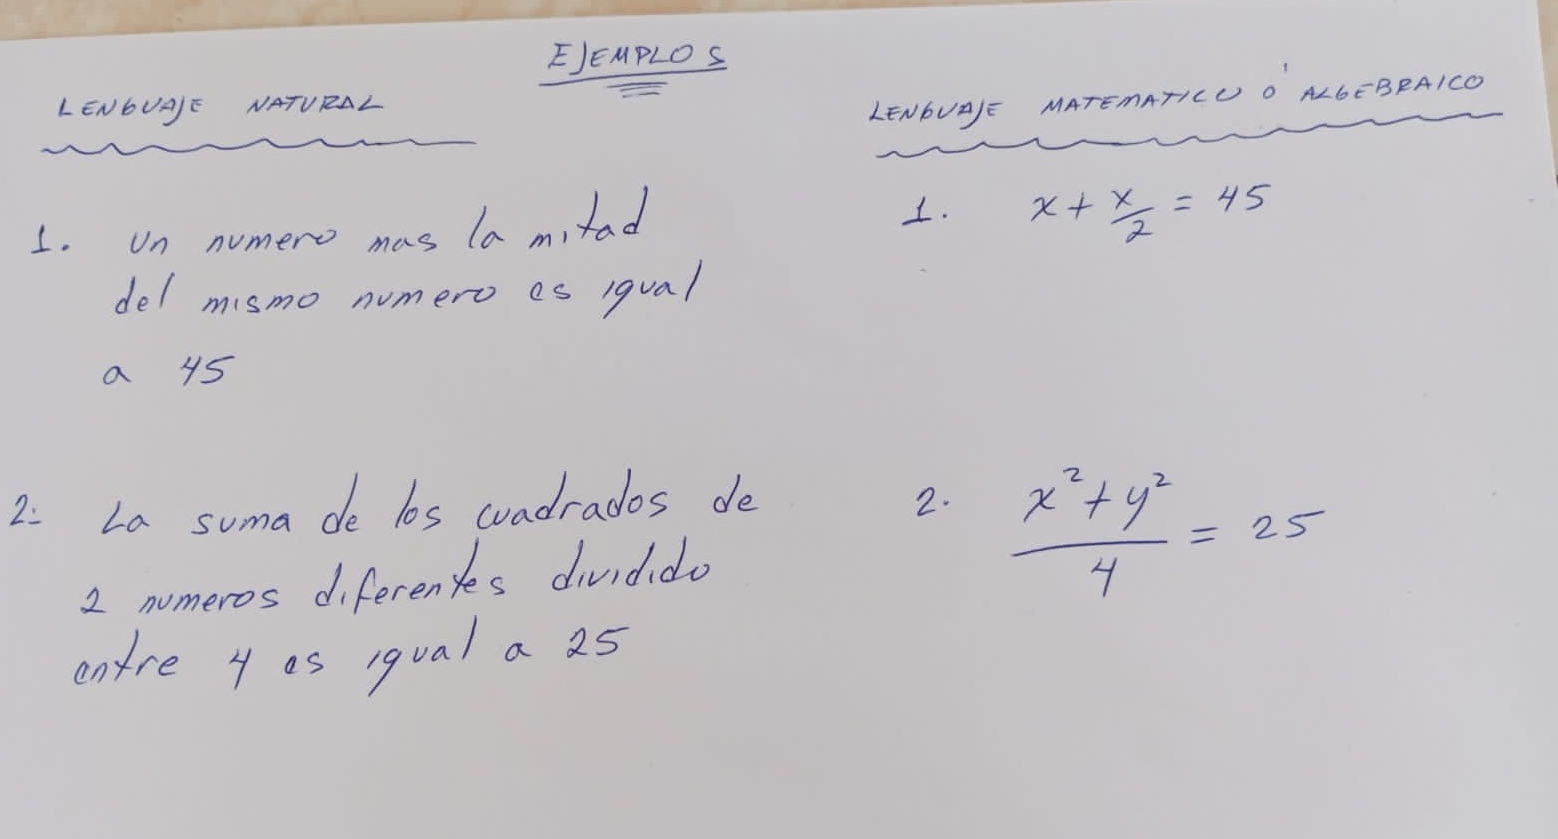 EJEMPLOS
LENGUAJE NATURAL
1. Un numero mas la mitad
del mismo numero es igual
a 45
2. La suma de los cuadrados de
2 numeros diferentes dividido
entre 4 es igual a 25
LENGUAJE MATEMATICO Ó ALGEBRAICO
1. x + x/2 = 45
2. x² + y²
= 25
4